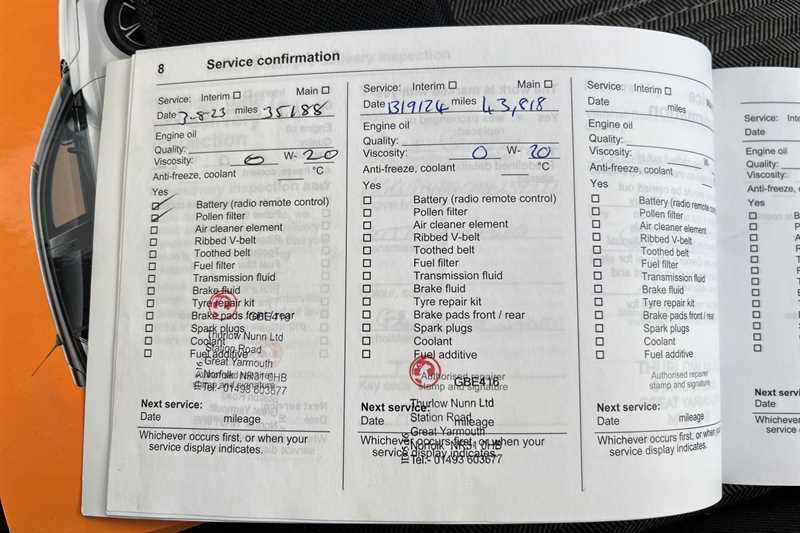 8 Service confirmation
Service: Interim Main
Date 3-8-23 miles 35188
Engine oil
Quality:
Viscosity: 0 W- 20
Anti-freeze, coolant °C
Yes
Battery (radio remote control)
Pollen filter
Air cleaner element
Ribbed V-belt
Toothed belt
Fuel filter
Transmission fluid
Brake fluid
Tyre repair kit
Brake pads front / rear
GBE416
Spark plugs
Thurlow Nunn Ltd
Coolant
Station Road
Fuel additive
Great Yarmouth
Norfolk NR31 0HB
Authorised repairer
stamp and signature
Tel:- 01493 603677
Next service:
Date mileage
Whichever occurs first, or when your
service display indicates.
Service: Interim Main
Date 13/9/24 miles 43,818
Engine oil
Quality:
Viscosity: 0 W- 20
Anti-freeze, coolant °C
Yes
Battery (radio remote control)
Pollen filter
Air cleaner element
Ribbed V-belt
Toothed belt
Fuel filter
Transmission fluid
Brake fluid
Tyre repair kit
Brake pads front / rear
Spark plugs
Coolant
Fuel additive
Authorised repairer
GBE416
stamp and signature
Thurlow Nunn Ltd
Next service:
Station Road
Date mileage
Great Yarmouth
Whichever occurs first, or when your
Norfolk NR31 0HB
service display indicates.
Tel:- 01493 603677
Service: Interim
Date miles
Engine oil
Quality:
Viscosity:
Anti-freeze, coolant
Yes
Battery (radio remote
Pollen filter
Air cleaner element
Ribbed V-belt
Toothed belt
Fuel filter
Transmission fluid
Brake fluid
Tyre repair kit
Brake pads front / rear
Spark plugs
Coolant
Fuel additive
Authorised repairer
stamp and signature
Next service:
Date mileage
Whichever occurs first, or when your
service display indicates.
Service:
Date
Engine oil
Quality:
Viscosity:
Anti-freeze,
Yes
Next service:
Date
Whichever oc
service